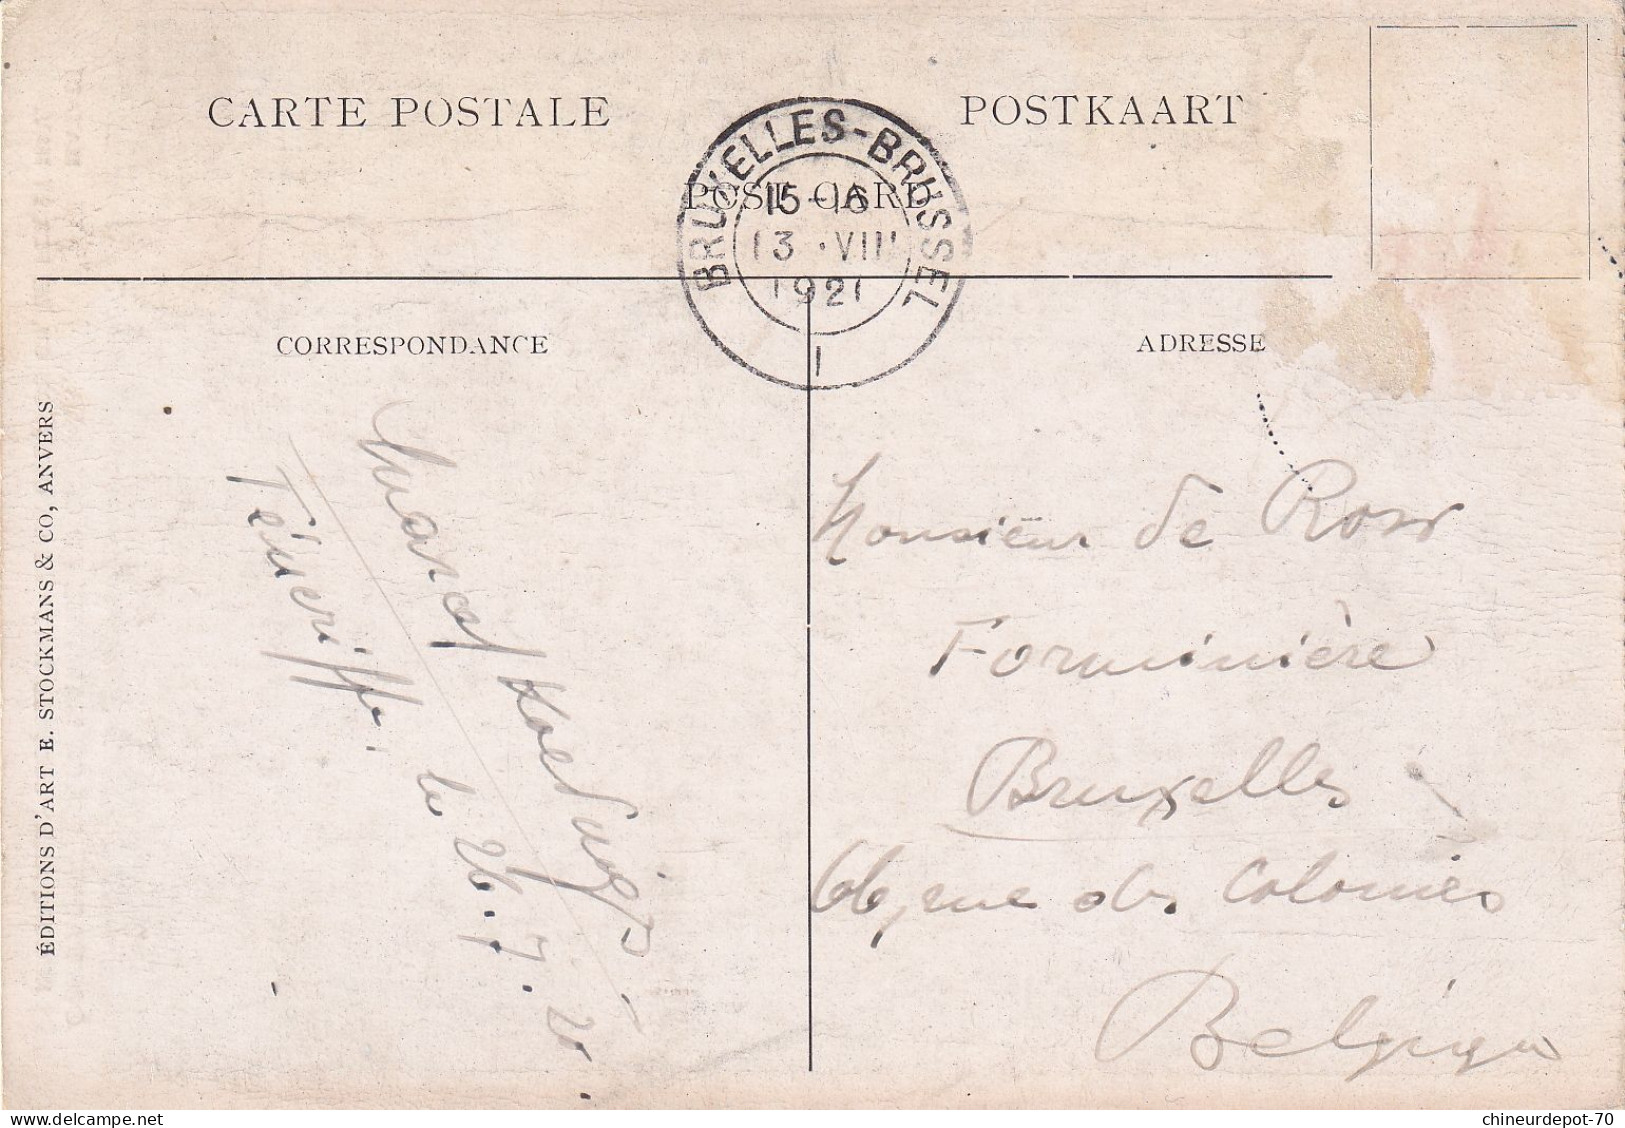 CARTE POSTALE
POSTKAART
POST CARD
BRUXELLES-BRUSSEL
15-16
13 . VIII
1921
1
CORRESPONDANCE
ADRESSE
ÉDITIONS D'ART E. STOCKMANS & CO, ANVERS
Ténériffe, le 26.7.20.
Monsieur de Rossi
Forminière
Bruxelles
66, rue des Colonies
Belgique
chineurdepot-70